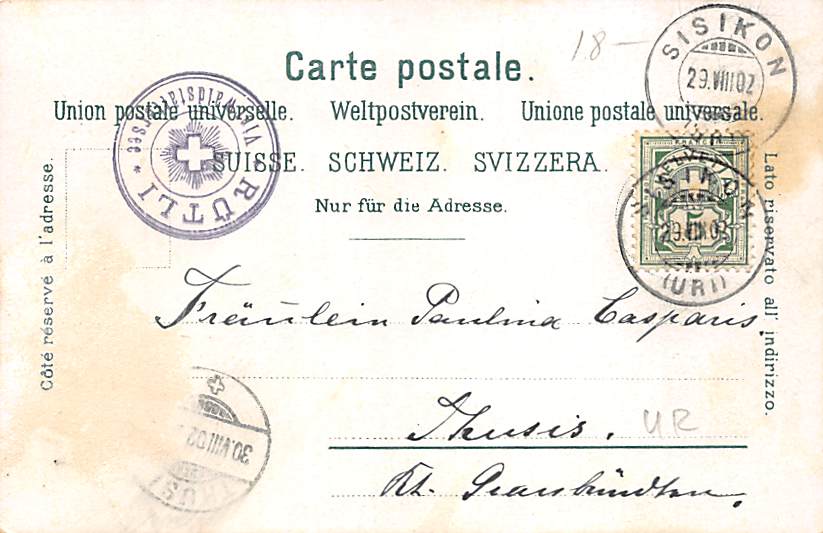 18-
SISIKON
29.VIII.02
Carte postale.
Union postale universelle. Weltpostverein. Unione postale universale.
SUISSE. SCHWEIZ. SVIZZERA.
Nur für die Adresse.
RÜTLI
Vierwaldstättersee
Côté réservé à l'adresse.
Lato riservato all' indirizzo.
HELVETIA
5
SISIKON
29.VIII.02
(URI)
Fräulein Paulina Casparis,
Thusis.
UR
Kt. Graubündten.
30.VIII.02
THUSIS